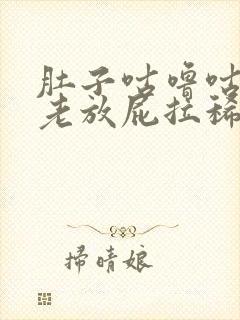 肚子咕噜咕
老放屁拉稀
掃晴娘